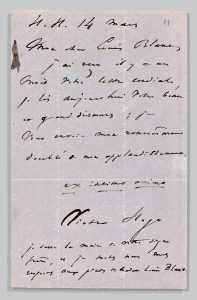 H. H. 14 mars
Mon cher Louis Blanc,
j'ai reçu il y a un
mois votre lettre cordiale,
je lis aujourd'hui votre beau
et grand discours ; je
vous envoie mon remerciement
double de mon applaudissement.
ex intimo animo
Victor Hugo
je serre la main à votre digne
frère, et je mets mes
respects aux pieds de Madame Louis Blanc.